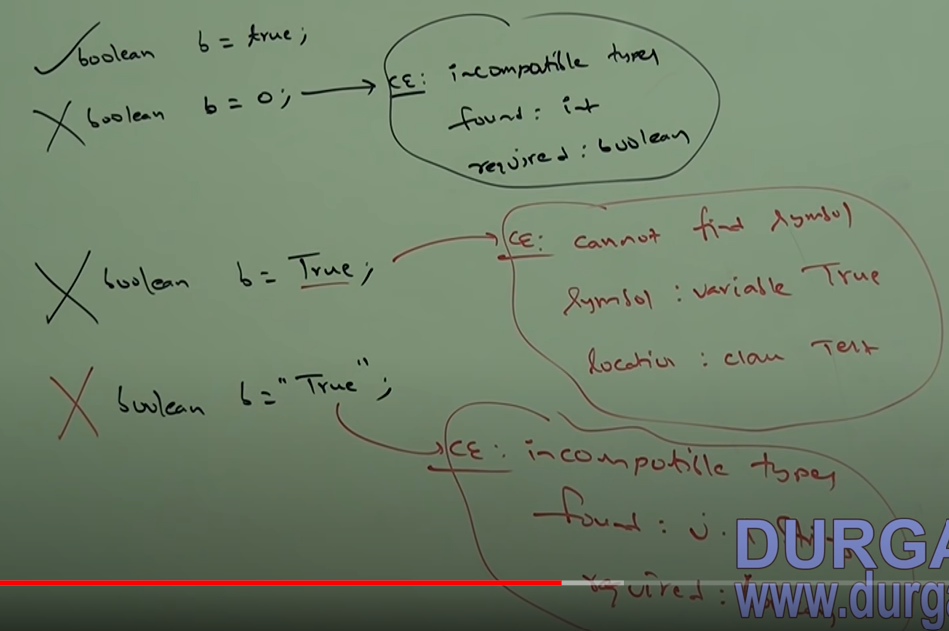 boolean b = true;
boolean b = 0;
CE: incompatible types
found: int
required: boolean
boolean b = True;
CE: cannot find symbol
symbol: variable True
location: class Test
boolean b = "True";
CE: incompatible types
found: j.
required:
DURGA
www.durg